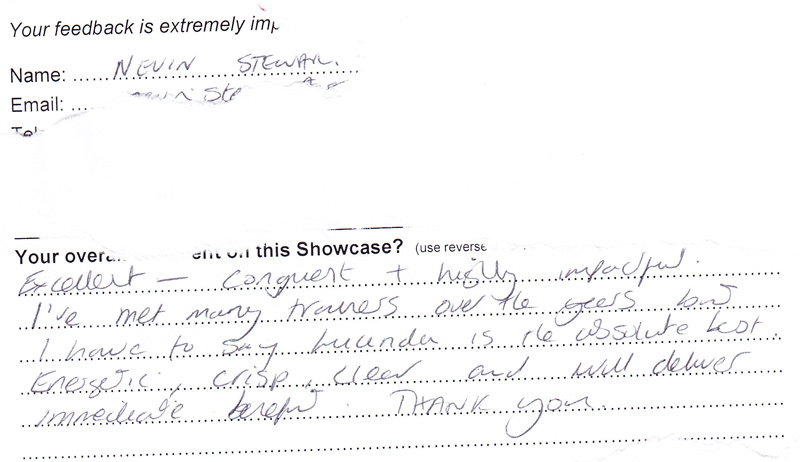 Your feedback is extremely imp
Name: ...... NEVIN STEWAR.
Email: ...
Tel
Your overa ent on this Showcase? (use reverse
Excellent — congruent + highly impactful.
I've met many trainers over the years but
I have to say Lucinda is the absolute best.
Energetic, crisp, clear and will deliver
immediate benefit. THANK you.